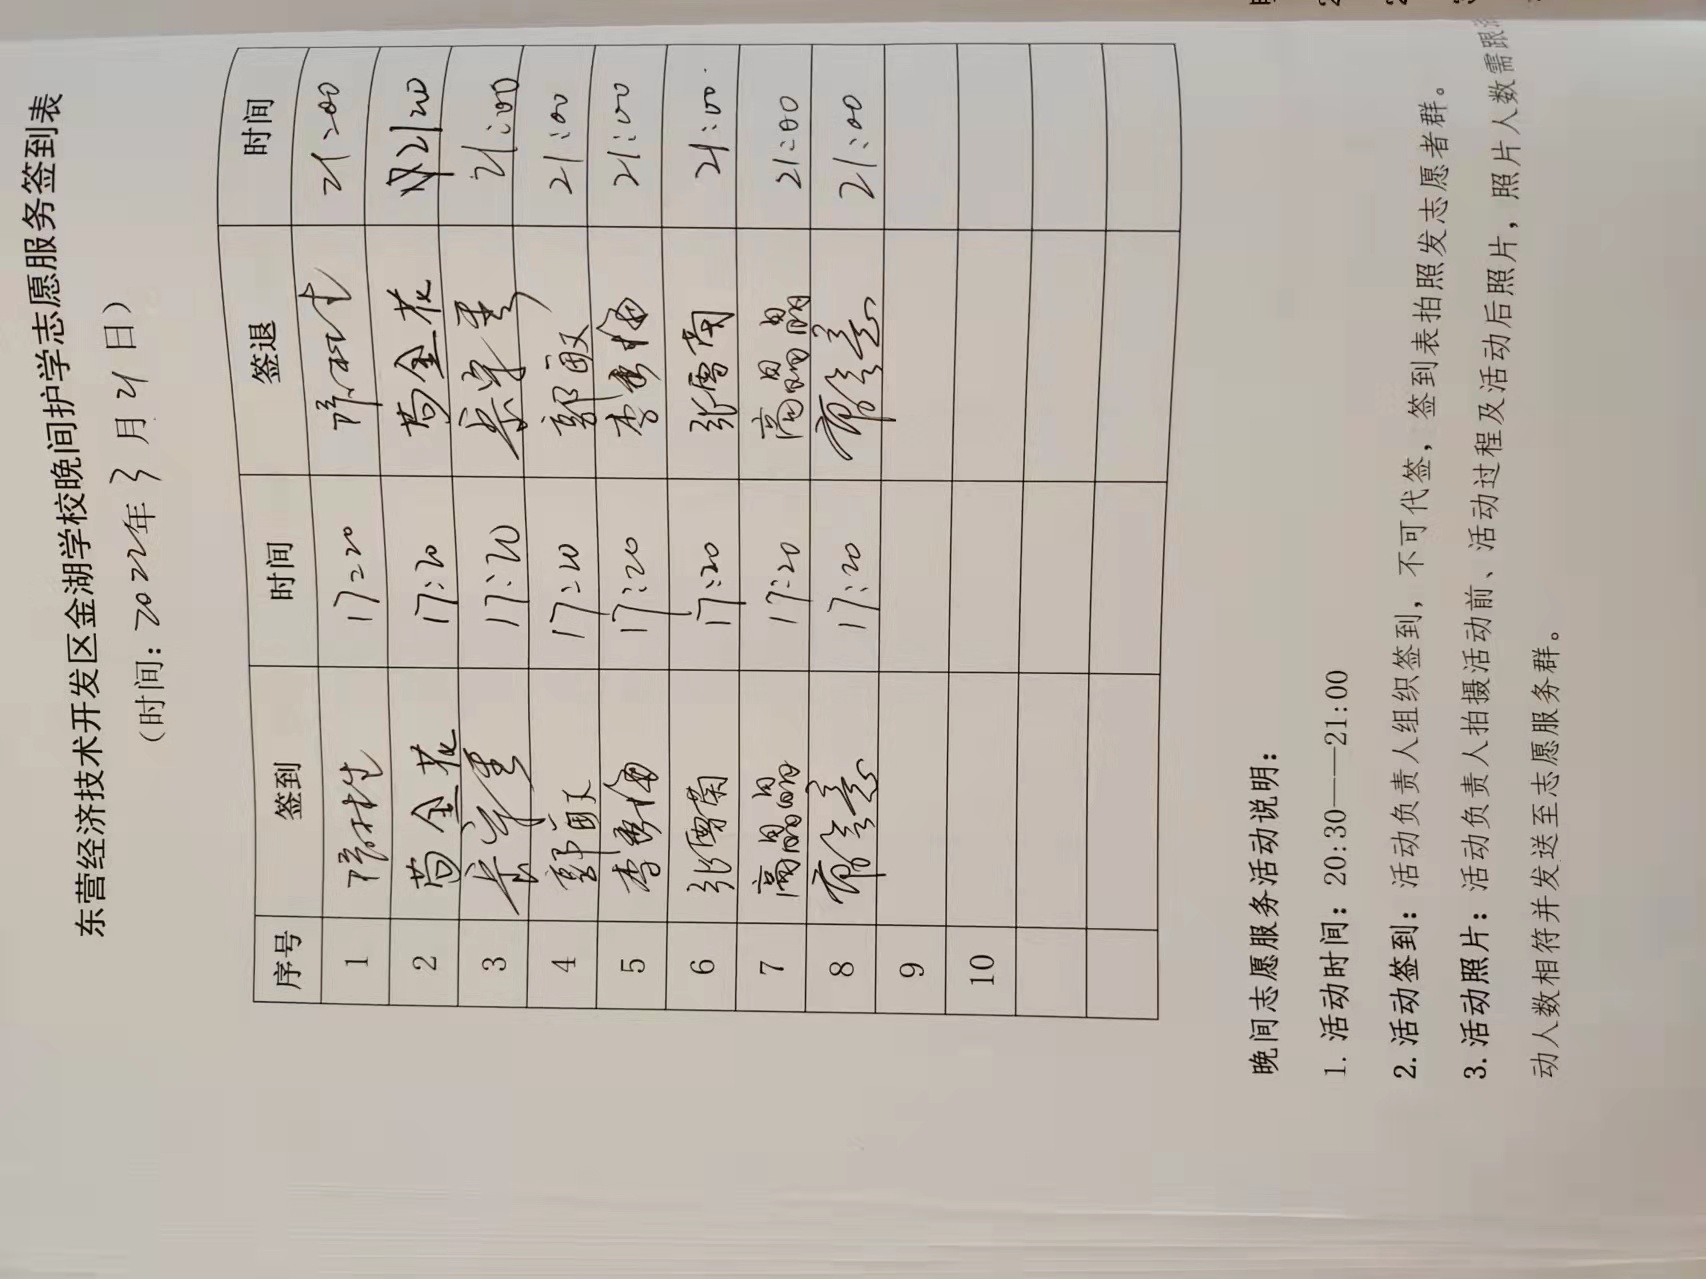 东营经济技术开发区金湖学校晚间护学志愿服务签到表
（时间：2022年3月21日）
序号 签到 时间 签退 时间
1 17:20 21:00
2 苟金花 17:20 苟金花 21:00
3 17:20 21:00
4 郭敏 17:20 郭敏 21:00
5 李秀梅 17:20 李秀梅 21:00
6 张雪菊 17:20 21:00
7 高晶晶 17:20 高晶晶 21:00
8 17:20 21:00
9
10
晚间志愿服务活动说明：
1. 活动时间：20:30——21:00
2. 活动签到：活动负责人组织签到，不可代签，签到表拍照发志愿者群。
3. 活动照片：活动负责人拍摄活动前、活动过程及活动后照片，照片人数需跟
动人数相符并发送至志愿服务群。